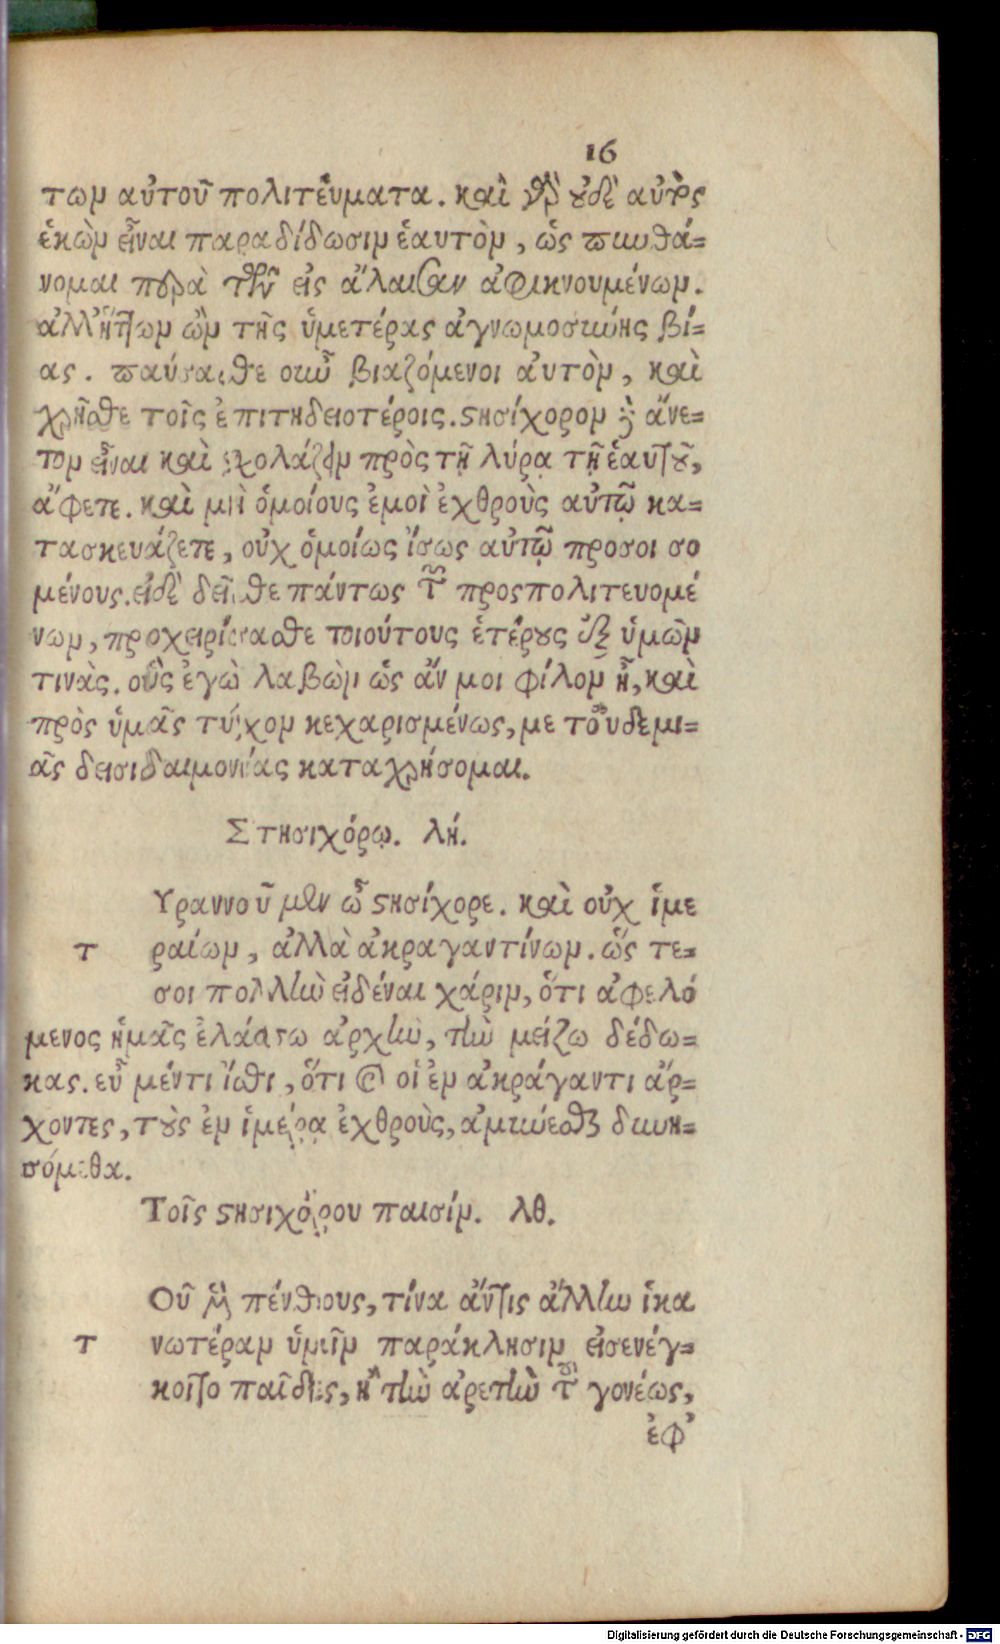 16
των αὐτοῦ πολιτεύματα. καὶ γὰρ οὐδὲ αὐτὸς
ἑκὼν εἶναι παραδίδωσιν ἑαυτὸν, ὡς πυνθά=
νομαι παρὰ τῶν εἰς ἄλαισαν ἀφικνουμένων.
ἀλλ' ἥττων ὢν τῆς ὑμετέρας ἀγνωμοσύνης βί=
ας. παύσασθε οὖν βιαζόμενοι αὐτὸν, καὶ
χρῆσθε τοῖς ἐπιτηδειοτέροις. στησίχορον δὲ ἄνε=
τον εἶναι καὶ σχολάζειν πρὸς τῇ λύρᾳ τῇ ἑαυτοῦ,
ἄφετε. καὶ μὴ ὁμοίους ἐμοὶ ἐχθροὺς αὐτῷ κα=
τασκευάζετε, οὐχ ὁμοίως ἴσως αὐτῷ προσοι σο
μένους. εἰ δὲ δεῖσθε πάντως τῶν προσπολιτευομέ
νων, προχειρίσασθε τοιούτους ἑτέρους ἐξ ὑμῶν
τινὰς. οὓς ἐγὼ λαβὼν ὡς ἄν μοι φίλον ᾖ, καὶ
πρὸς ὑμᾶς τύχον κεχαρισμένως, με τ' οὐδεμι=
ᾶς δεισιδαιμονίας καταχρήσομαι.
Στησιχόρῳ. λή.
Υραννοῦ μὲν ὦ στησίχορε. καὶ οὐχ ἱμε
τ ραίων, ἀλλὰ ἀκραγαντίνων. ὥς τε=
σοι πολλὴν εἰδέναι χάριν, ὅτι ἀφελό
μενος ἡμᾶς ἐλάσσω ἀρχὴν, τὴν μείζω δέδω=
κας. εὖ μέντι ἴσθι, ὅτι καὶ οἱ ἐν ἀκράγαντι ἄρ=
χοντες, τοὺς ἐν ἱμέρᾳ ἐχθροὺς, ἀμύνεσθαι δυνη=
σόμεθα.
Τοῖς στησιχόρου παισίν. λθ.
Οῦ μὲν πένθους, τίνα ἄν τις ἄλλην ἱκα
τ νωτέραν ὑμῖν παράκλησιν εἰσενέγ=
κοιτο παῖδες, ἢ τὴν ἀρετὴν τοῦ γονέως,
ἐφ'
Digitalisierung gefördert durch die Deutsche Forschungsgemeinschaft - DFG